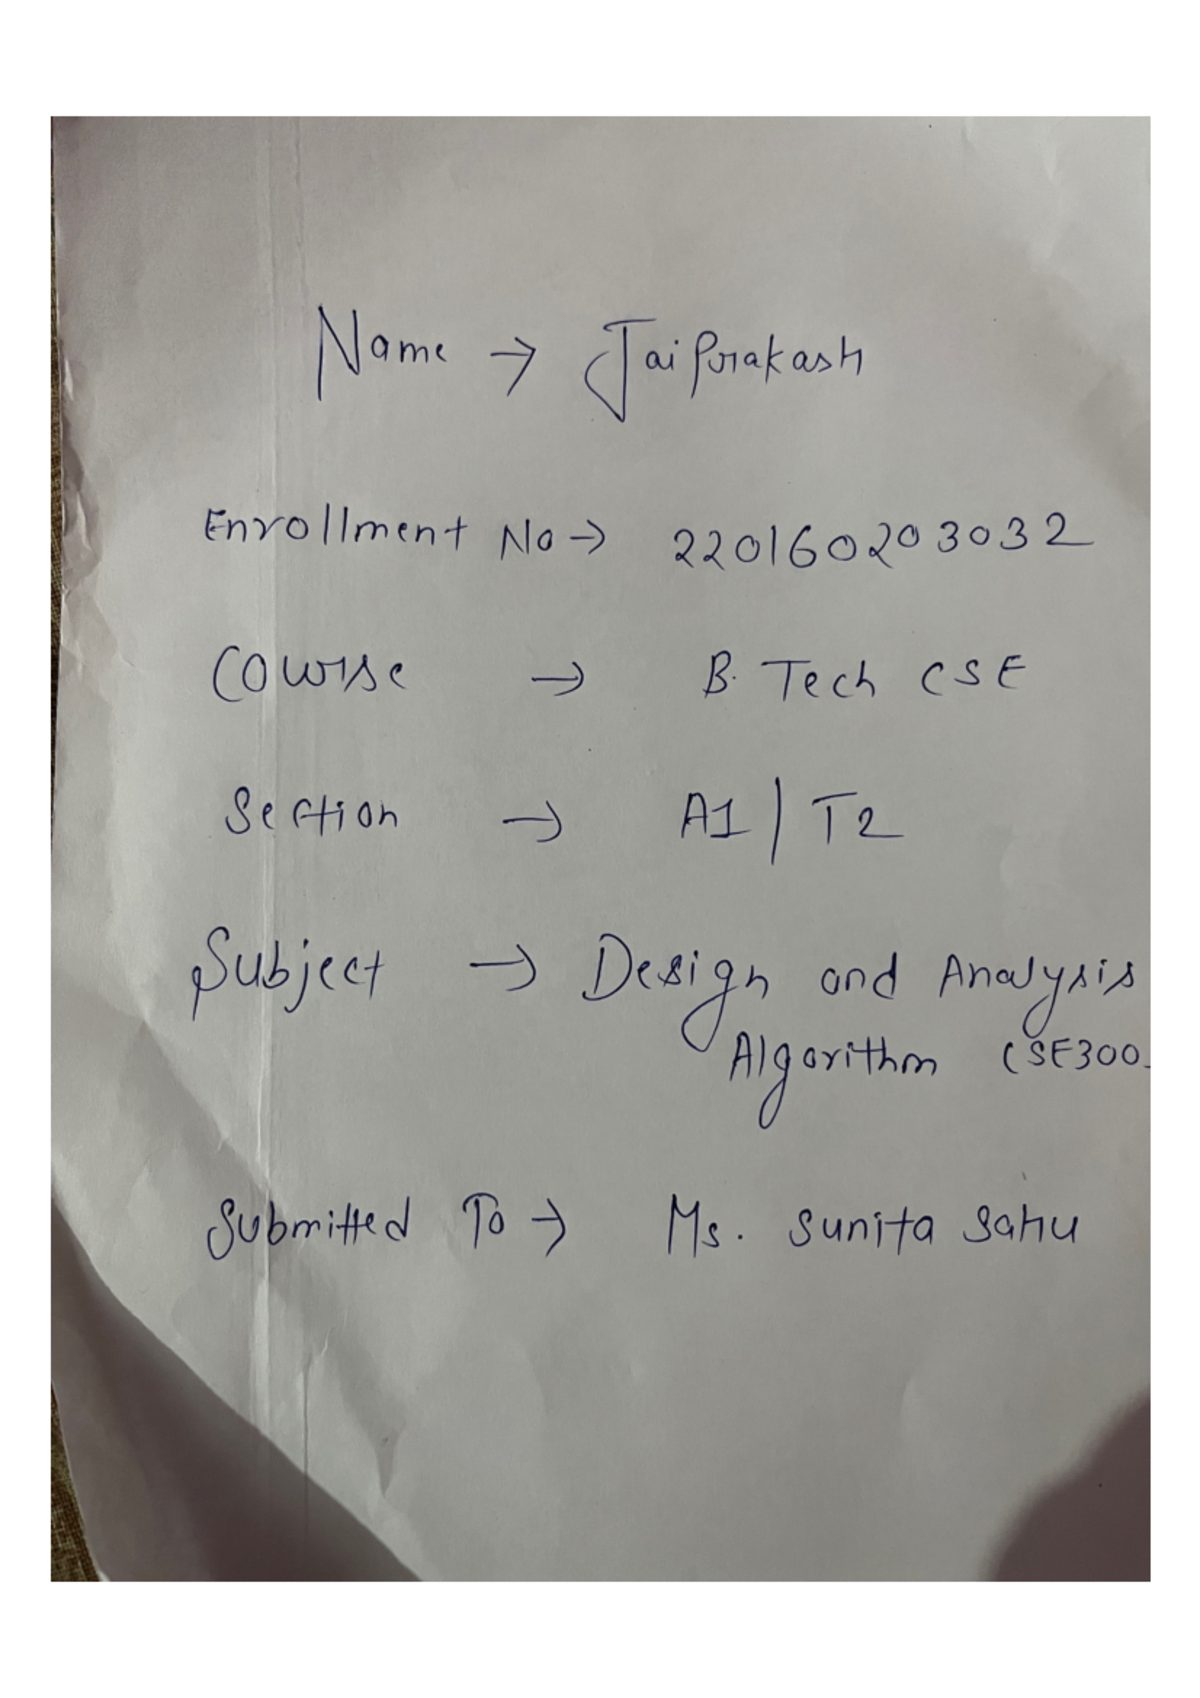 Name → Jai Prakash
Enrollment No → 220160203032
Course → B. Tech CSE
Section → A1 | T2
Subject → Design and Analysis
Algorithm CSE300
Submitted To → Ms. Sunita Sahu